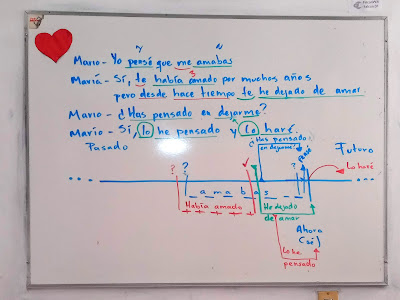 Mario- Yo pensé que me amabas
María- Sí, te había amado por muchos años
pero desde hace tiempo te he dejado de amar.
Mario- ¿Has pensado en dejarme?
María- Sí, lo he pensado y lo haré.
¿Has pensado
en dejarme?
Pensé
Pasado
Futuro
Lo haré
? ? ✓ ?
a m a b a s
Había amado
He dejado
de amar
Ahora
(sé)
Lo he
pensado